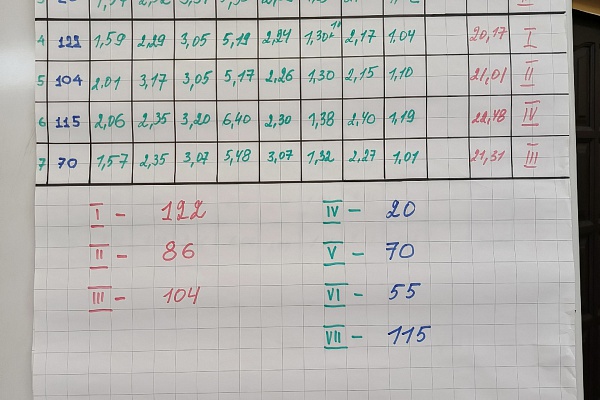 4 122 1,59 2,29 3,05 5,19 2,24 1,30 2,17 1,04 20,17 I
5 104 2,01 3,17 3,05 5,17 2,26 1,30 2,15 1,10 21,01 II
6 115 2,06 2,35 3,20 6,40 2,30 1,38 2,40 1,19 22,48 IV
7 70 1,57 2,35 3,07 5,48 3,07 1,32 2,27 1,01 21,31 III
I - 122 IV - 20
II - 86 V - 70
III - 104 VI - 55
VII - 115